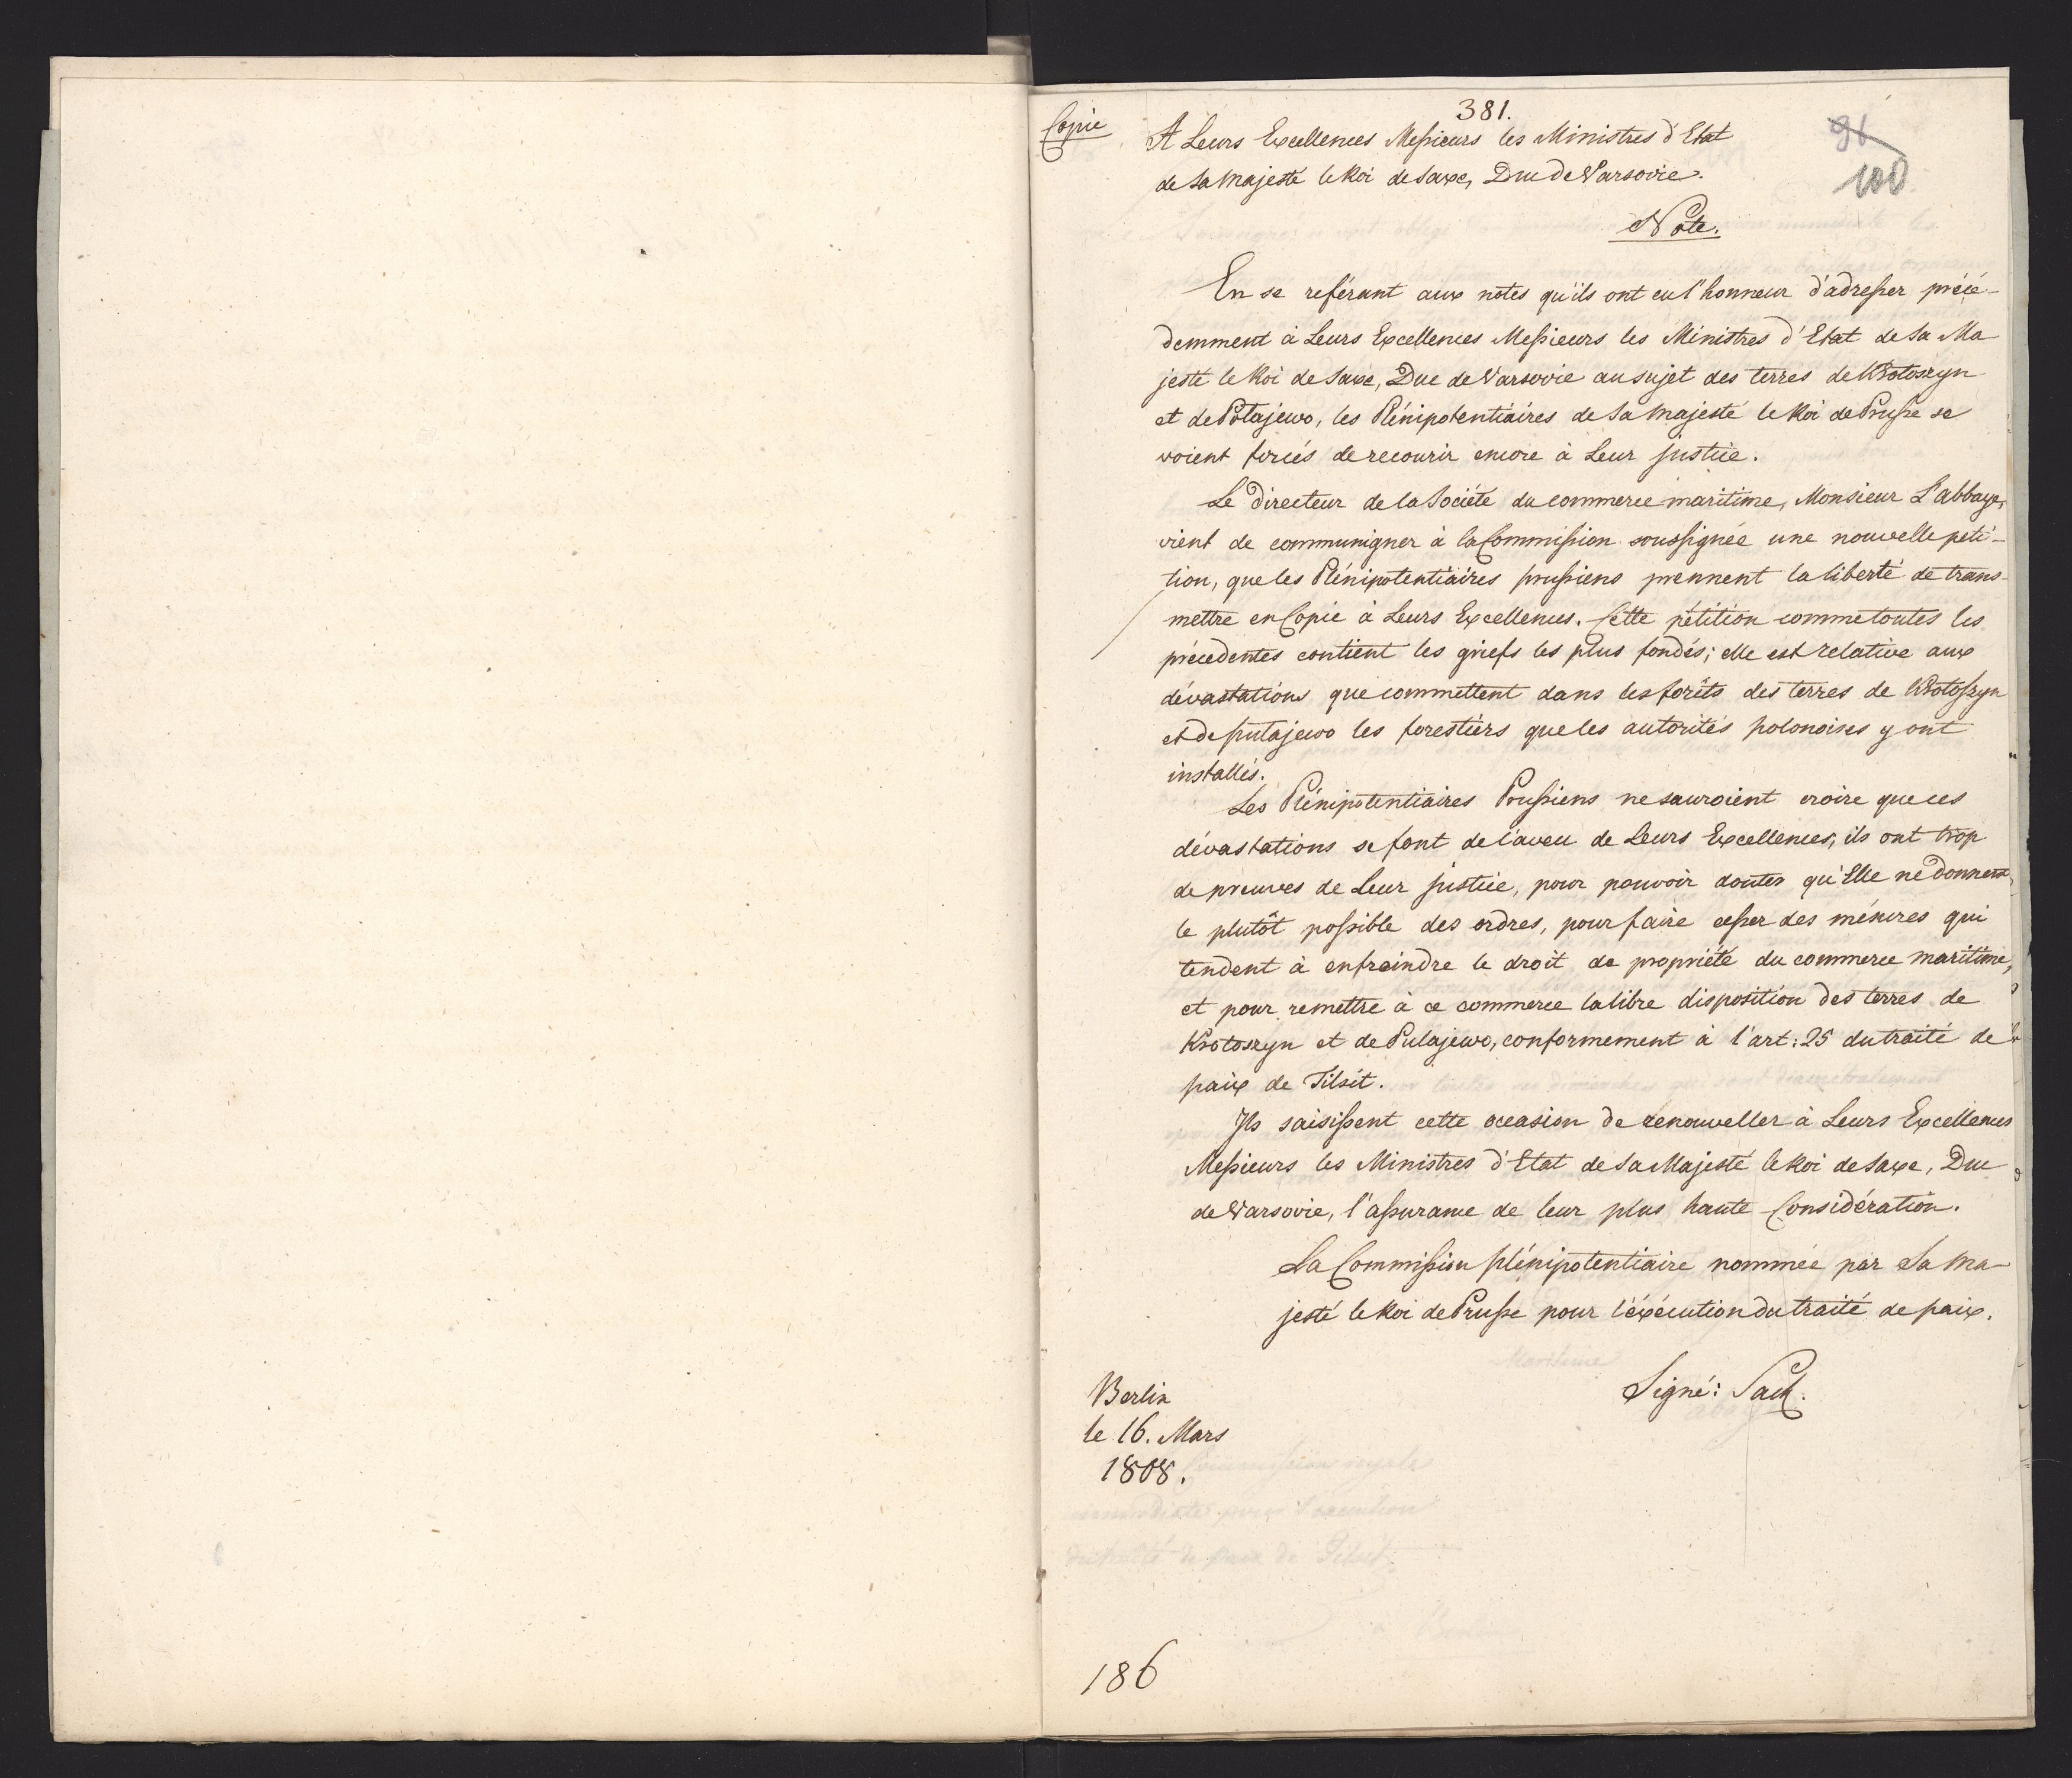 381.
Copie
A Leurs Excellences Messieurs les Ministres d'Etat
96
de Sa Majesté le Roi de Saxe, Duc de Varsovie.
100
Note.
En se reférant aux notes qu'ils ont eu l'honneur d'adresser précé-
demment à Leurs Excellences Messieurs les Ministres d'Etat de Sa Ma-
jesté le Roi de Saxe, Duc de Varsovie au sujet des terres de Krotoszyn
et de Potajewo, les Plénipotentiaires de Sa Majesté le Roi de Prusse se
voient forcés de recourir encore à Leur justice.
Le Directeur de la Société du commerce maritime, Monsieur L'abbaye,
vient de communiquer à la Commission soussignée une nouvelle péti-
tion, que les Plénipotentiaires prussiens prennent la liberté de trans-
mettre en Copie à Leurs Excellences. Cette pétition comme toutes les
précedentes contient les griefs les plus fondés; elle est relative aux
dévastations que commettent dans les forêts des terres de Krotoszyn
et de putajewo les forestiers que les autorités polonoises y ont
installés.
Les Plénipotentiaires Prussiens ne sauroient croire que ces
dévastations se font de l'aveu de Leurs Excellences, ils ont trop
de preuves de Leur justice, pour pouvoir douter qu'Elle ne donnent
le plutôt possible des ordres, pour faire cesser des mésures qui
tendent à enfreindre le droit de propriété du commerce maritime,
et pour remettre à ce commerce la libre disposition des terres de
Krotoszyn et de Pulajewo, conformement à l'art: 25 du traité de
paix de Tilsit.
Ils saisissent cette occasion de renouveller à Leurs Excellences
Messieurs les Ministres d'Etat de Sa Majesté le Roi de Saxe, Duc
de Varsovie, l'assurance de leur plus haute Considération.
La Commission plénipotentiaire nommée par Sa Ma-
jesté le Roi de Prusse pour l'éxécution du traité de paix.
Signé: Sack.
Berlin
le 16. Mars
1808.
186